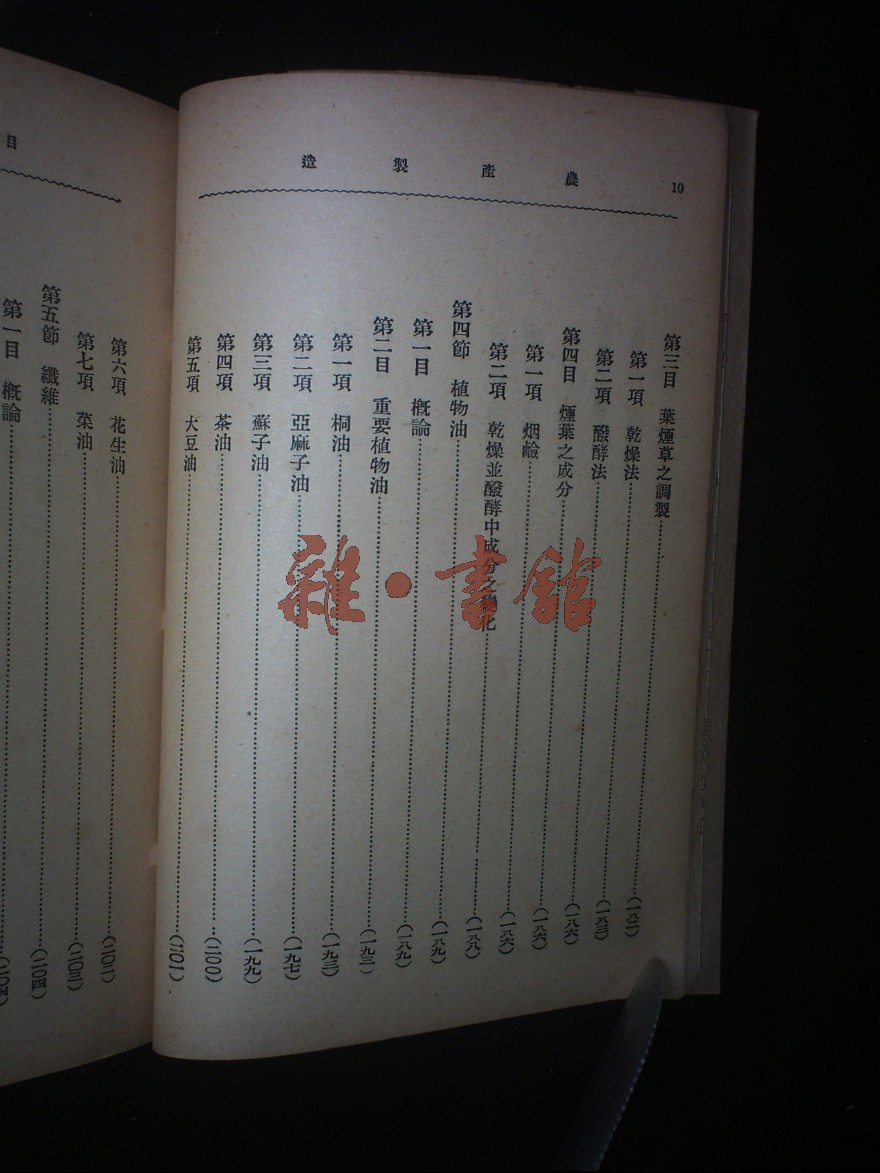 10
農產製造
第三目 葉煙草之調製……
第一項 乾燥法……(一八二)
第二項 醱酵法……(一八三)
第四目 煙葉之成分……(一八六)
第一項 烟鹼……(一八六)
第二項 乾燥並醱酵中成分之 化……(一八八)
第四節 植物油……(一八九)
第一目 概論……(一八九)
第二目 重要植物油……(一九三)
第一項 桐油……(一九三)
第二項 亞麻子油……(一九七)
第三項 蘇子油……(一九九)
第四項 茶油……(二〇〇)
第五項 大豆油……(二〇一)
目
第六項 花生油……(二〇二)
第七項 菜油……(二〇三)
第五節 纖維……(二〇四)
第一目 概論……(二〇四
雜·書館